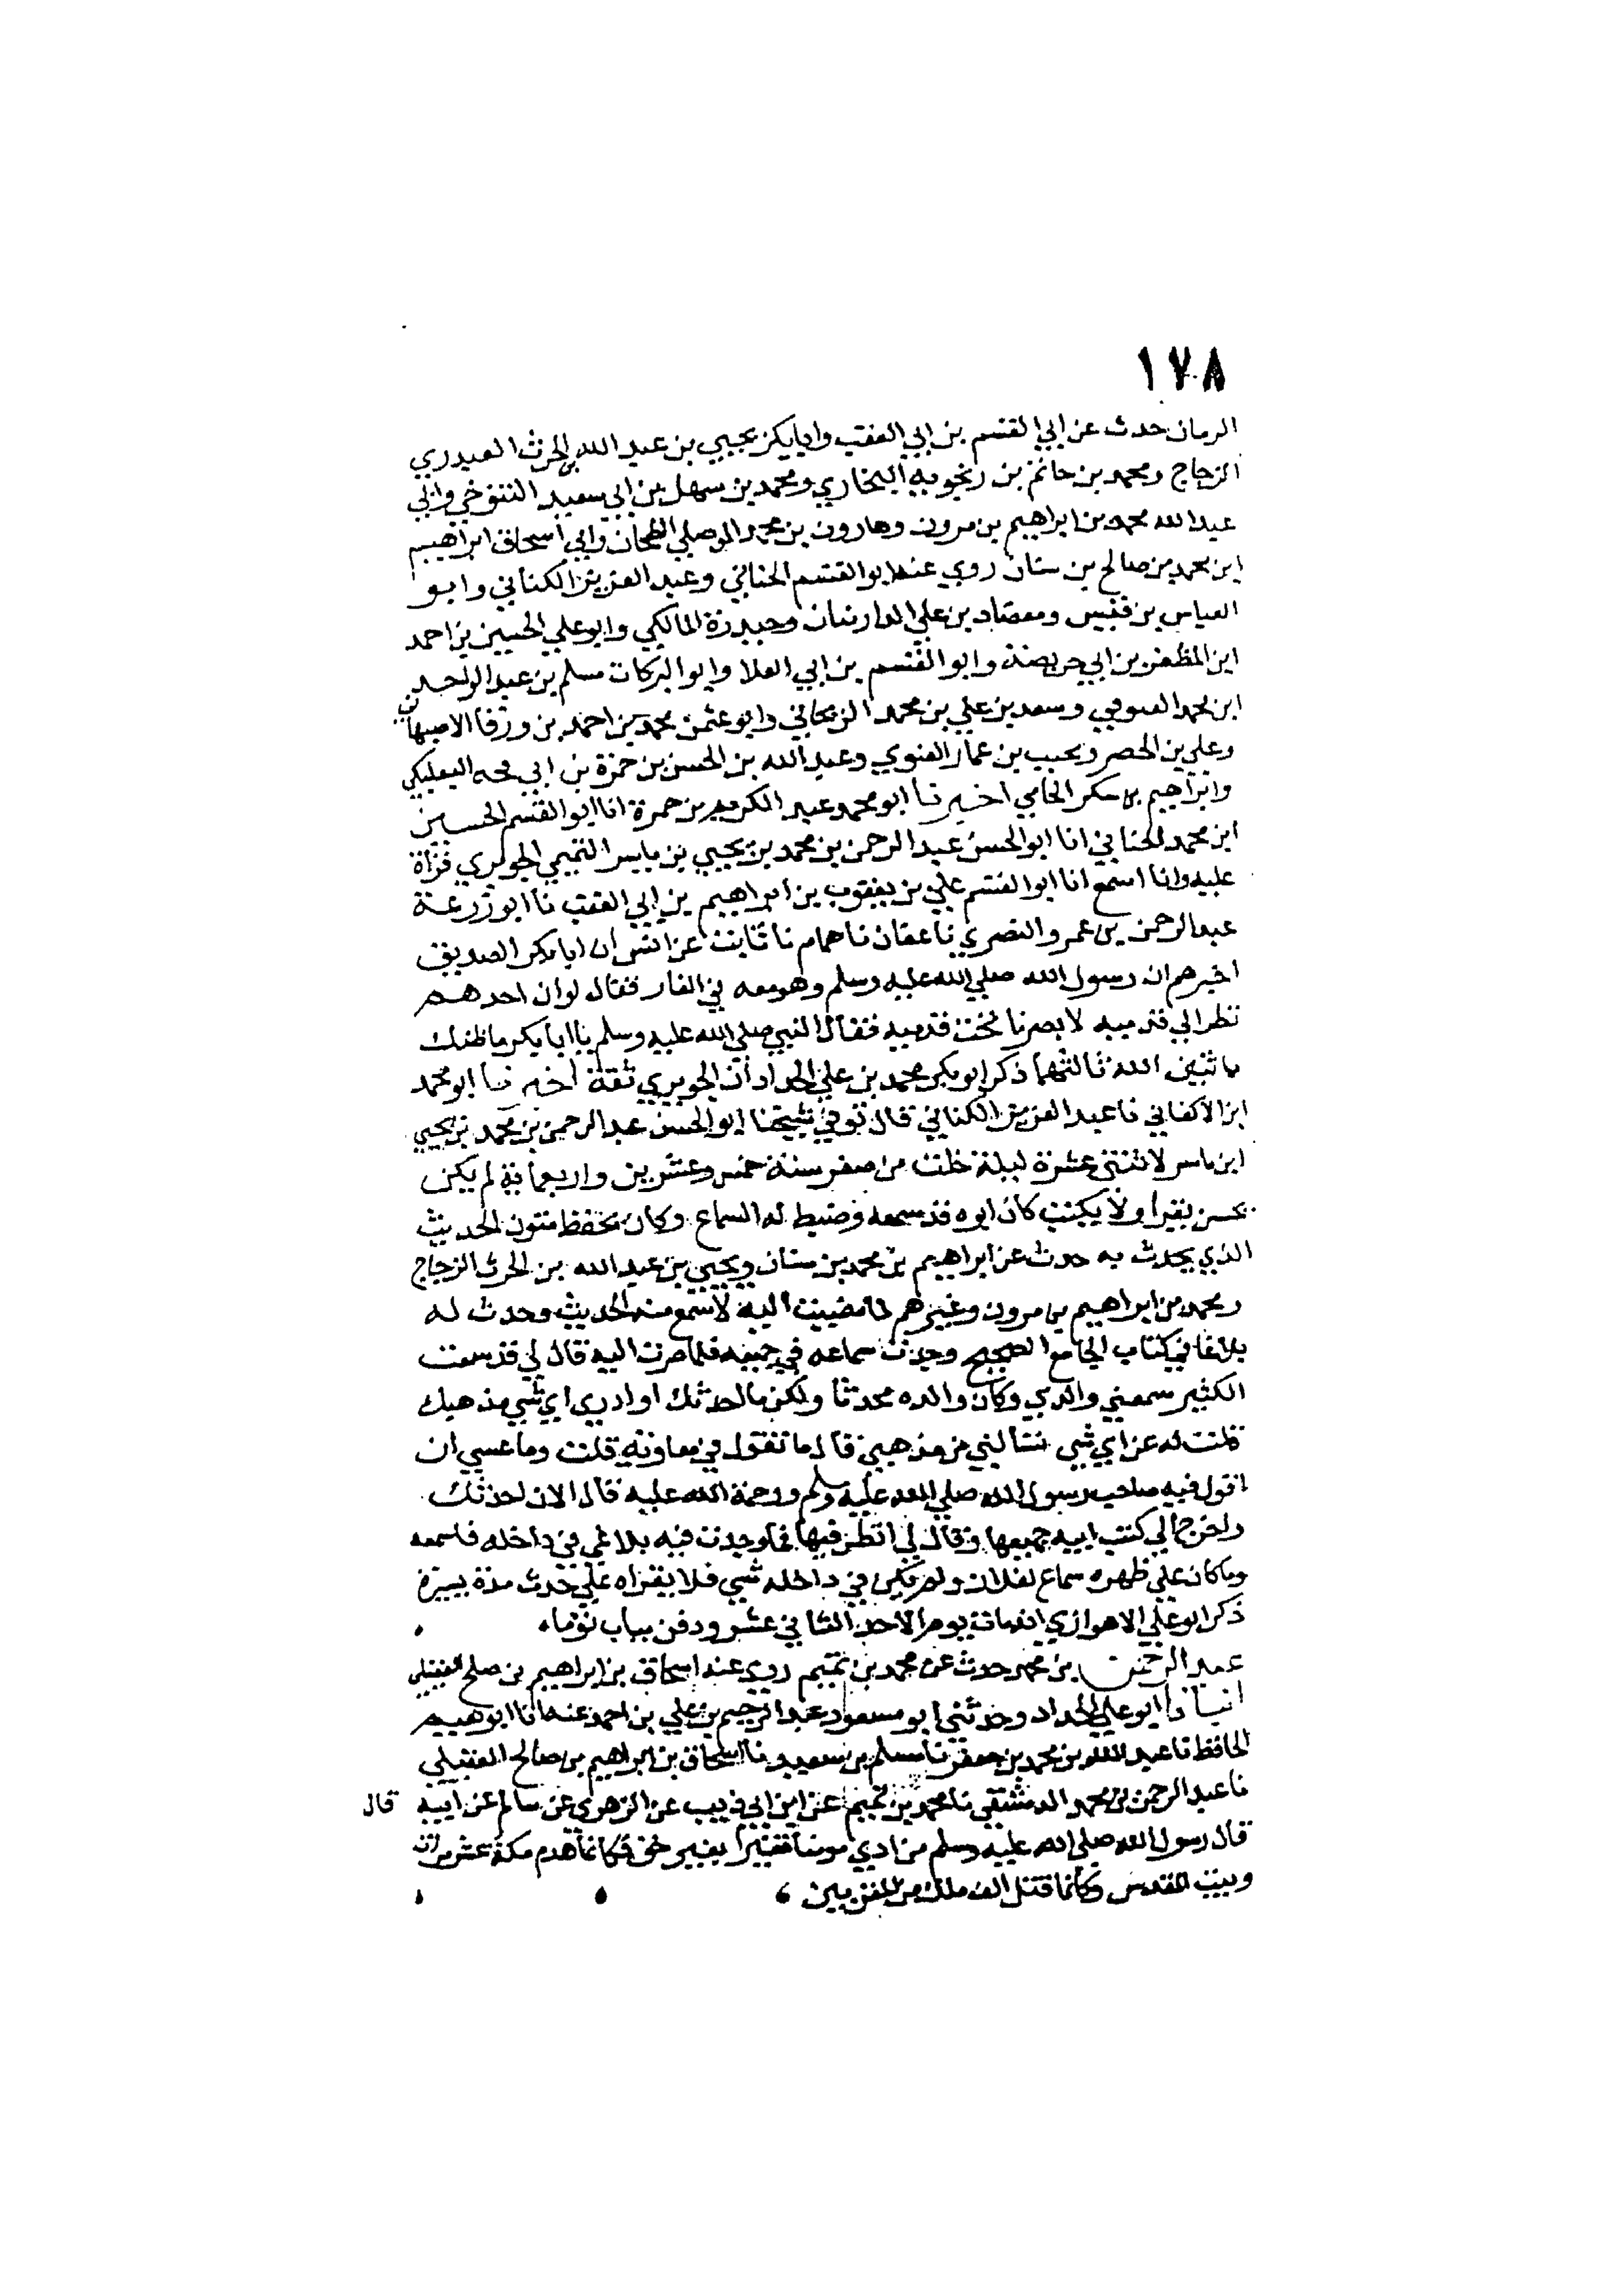 ١٧٨
الرمان حدث عن ابي القسم بن ابي العقب وابا بكر يحيي بن عبد الله بن الحرث العبدري
الزجاج ومحمد بن حاتم بن زنجويه البخاري ومحمد بن سهل بن ابي سعيد التنوخي وابي
عبد الله محمد بن ابراهيم بن مرون وهارون بن محمد الموصلي الطحان وابي اسحاق ابراهيم
ابن محمد بن صالح بن سنان روي عنه ابو القسم الحنائي وعبد العزيز الكتاني وابو
العباس بن قبيس ومعضاد بن علي الدارينان وحيدرة المالكي وابو علي الحسين بن احمد
ابن المظفر بن ابي حريصة وابو القسم بن ابي العلا وابو البركات مسلم بن عبد الواحد
ابن محمد الصوفي وسعد بن علي بن محمد الزنجاني وابو عثمن محمد بن احمد بن ورقا الاصبهاني
وعلي بن الخضر ونجيب بن عمار الغنوي وعبد الله بن الحسن بن حمزة بن ابي البعلبكي
وابراهيم بن سكر الخامي اخبرنا ابو محمد عبد الكريم بن حمزة انا ابو القسم الحسين
ابن محمد الحنائي انا ابو الحسن عبد الرحمن بن محمد بن يحيي بن ياسر التميمي الجوبري قراة
عليه وانا اسمع انا ابو القسم علي بن يعقوب بن ابراهيم بن ابي العقب نا ابو زرعة
عبد الرحمن بن عمرو النصري نا عفان نا همام نا ثابت عن انس ان ابا بكر الصديق
اخبرهم ان رسول الله صلي الله عليه وسلم وهو معه في الغار فقال لو ان احدهم
نظر الي قدميه لابصرنا تحت قدميه فقال النبي صلي الله عليه وسلم يا ابا بكر ما ظنك
باثنين الله ثالثهما ذكر ابو بكر محمد بن علي الحداد ان الجوبري ثقة اخبرنا ابو محمد
ابن الاكفاني نا عبد العزيز الكتاني قال توفي شيخنا ابو الحسن عبد الرحمن بن محمد بن يحيي
ابن ياسر لاثنتي عشرة ليلة خلت من صفر سنة خمس وعشرين واربعماية لم يكن
يحسن يقرا ولا يكتب كان ابوه قد سمعه وضبط له السماع وكان يحفظ متون الحديث
الذي يحدث به حدث عن ابراهيم بن محمد بن سنان ويحيي بن عبد الله بن الحرث الزجاج
ومحمد بن ابراهيم بن مرون وغيرهم لما مضيت اليه لاسمع منه الحديث وحدث له
بلاغا في كتاب الجامع الصحيح وجدت سماعه في جميعه فلما صرت اليه قال لي قد سمعت
الكثير سمعني والدي وكان والده محدثا ولكن ما احدثك او ادري اي شي مذهبك
قلت له عن اي شي تسالني من مذهبي قال ما تقول في معاوية قلت وما عسي ان
اقول فيه صاحب رسول الله صلي الله عليه وسلم ورحمة الله عليه قال الان احدثك
واخرج الي كتب ابيه جميعها وقال لي انظر فيها فما وجدت فيه بلاغي في داخله فاسمعه
وما كان علي ظهره سماع لفلان ولم يكن في داخله شي فلا يقراه علي حدث مدة يسيرة
ذكر ابو علي الاهوازي انه مات يوم الاحد الثاني عشر ودفن بباب توما
عبد الرحمن بن محمد حدث عن محمد بن تميم روي عنه اسحاق بن ابراهيم بن صلح العقيلي
انبانا ابو علي الحداد وحدثني ابو مسعود عبد الرحيم بن علي بن احمد عنه انا ابو نعيم
الحافظ نا عبد الله بن محمد بن جعفر نا مسلم بن سعيد نا اسحاق بن ابراهيم بن صالح العقيلي
نا عبد الرحمن بن محمد الدمشقي نا محمد بن تميم عن ابن ابي ذيب عن الزهري عن سالم عن ابيه قال
قال رسول الله صلي الله عليه وسلم من اذي مومنا فقيرا بغير حق فكانما هدم مكة عشر مرات
وبيت المقدس وكانما قتل الف ملك من المقربين